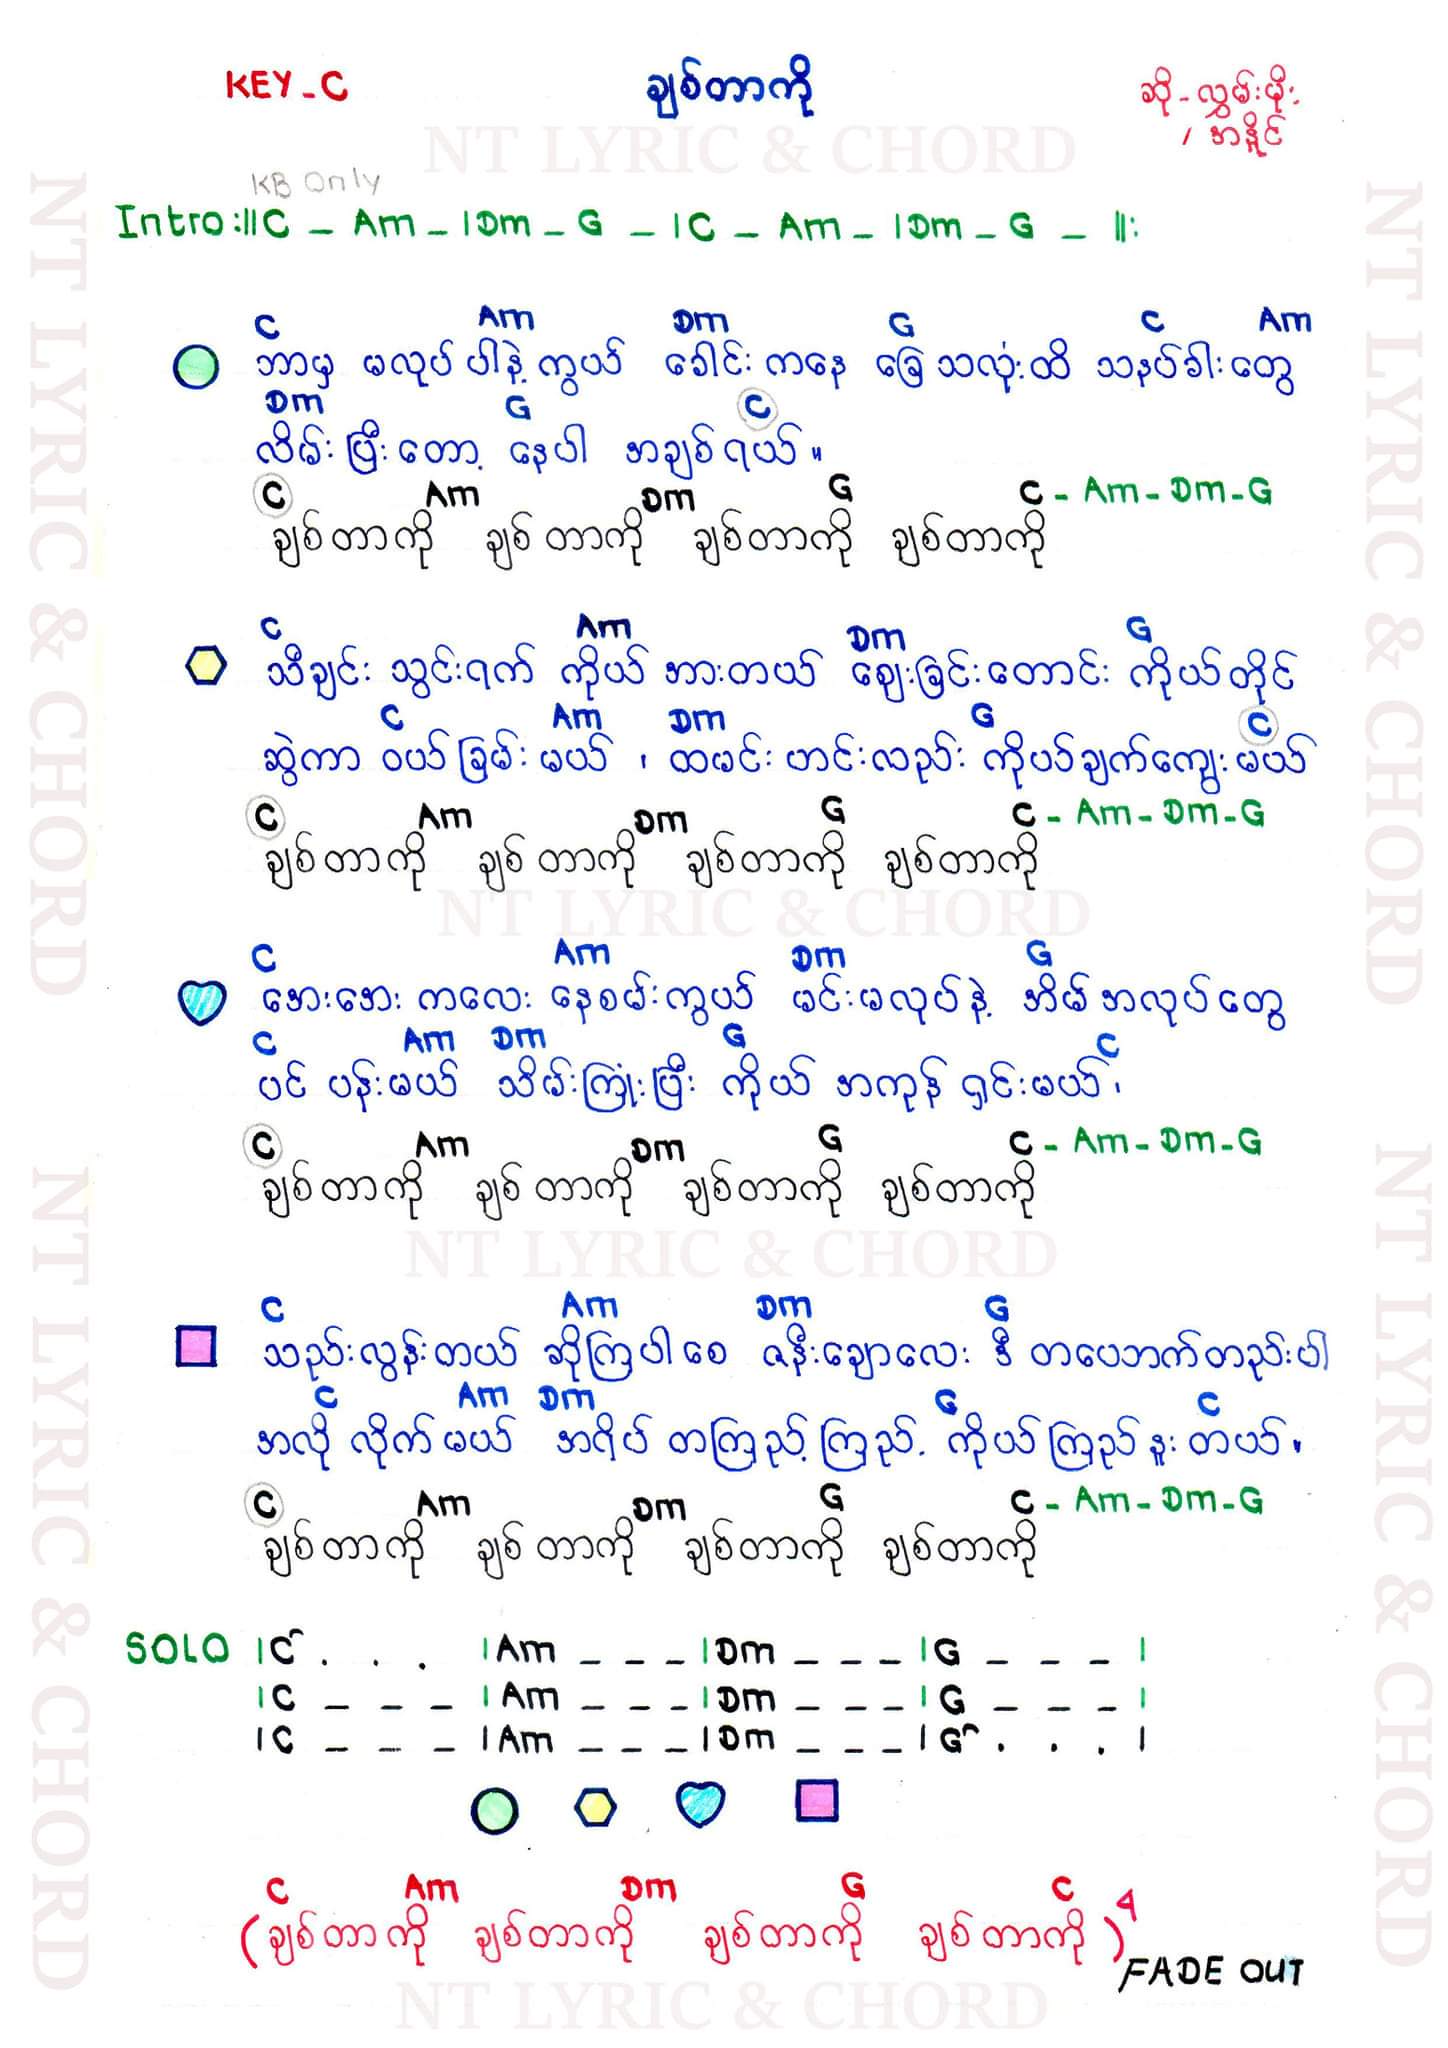 KEY - C
ချစ်တာကို
ဆို - လွှမ်းမိုး
၊ အနှိုင်
NT LYRIC & CHORD
KB Only
Intro :|| C _ Am _ | Dm _ G _ | C _ Am _ | Dm _ G _ ||:
C Am Dm G C Am
ဘာမှ မလုပ် ပါနဲ့ ကွယ် ခေါင်း ကနေ ခြေသလုံးထိ သနပ်ခါးတွေ
Dm G C
လိမ်းပြီးတော့ နေပါ အချစ်ရယ်။
C Am Dm G C - Am - Dm - G
ချစ်တာကို ချစ်တာကို ချစ်တာကို ချစ်တာကို
C Am Dm G
သီချင်း သွင်းရက် ကိုယ် အားတယ် ဈေးခြင်းတောင်း ကိုယ်တိုင်
C Am Dm G C
ဆွဲကာ ဝယ်ခြမ်းမယ် ၊ ထမင်းဟင်းလည်း ကိုယ်ချက်ကျွေးမယ်
C Am Dm G C - Am - Dm - G
ချစ်တာကို ချစ်တာကို ချစ်တာကို ချစ်တာကို
NT LYRIC & CHORD
C Am Dm G
အေးအေး ကလေး နေစမ်းကွယ် မင်းမလုပ်နဲ့ အိမ်အလုပ်တွေ
C Am Dm G C
ပင်ပန်းမယ် သိမ်းကြုံးပြီး ကိုယ် အကုန် ရှင်းမယ်၊
C Am Dm G C - Am - Dm - G
ချစ်တာကို ချစ်တာကို ချစ်တာကို ချစ်တာကို
NT LYRIC & CHORD
C Am Dm G
သည်းလွန်းတယ် ဆိုကြပါစေ ဇနီးချောလေး ဒီ တပေဘက်တည်းပါ
C Am Dm G C
အလို လိုက်မယ် အရိပ် တကြည့်ကြည့် ကိုယ်ကြည်နူးတယ်။
C Am Dm G C - Am - Dm - G
ချစ်တာကို ချစ်တာကို ချစ်တာကို ချစ်တာကို
SOLO | C . . . | Am _ _ _ | Dm _ _ _ | G _ _ _ |
| C _ _ _ | Am _ _ _ | Dm _ _ _ | G _ _ _ |
| C _ _ _ | Am _ _ _ | Dm _ _ _ | G . . . |
C Am Dm G C
(ချစ်တာကို ချစ်တာကို ချစ်တာကို ချစ်တာကို)⁴
FADE OUT
NT LYRIC & CHORD
NT LYRIC & CHORD
NT LYRIC & CHORD
NT LYRIC & CHORD
NT LYRIC & CHORD